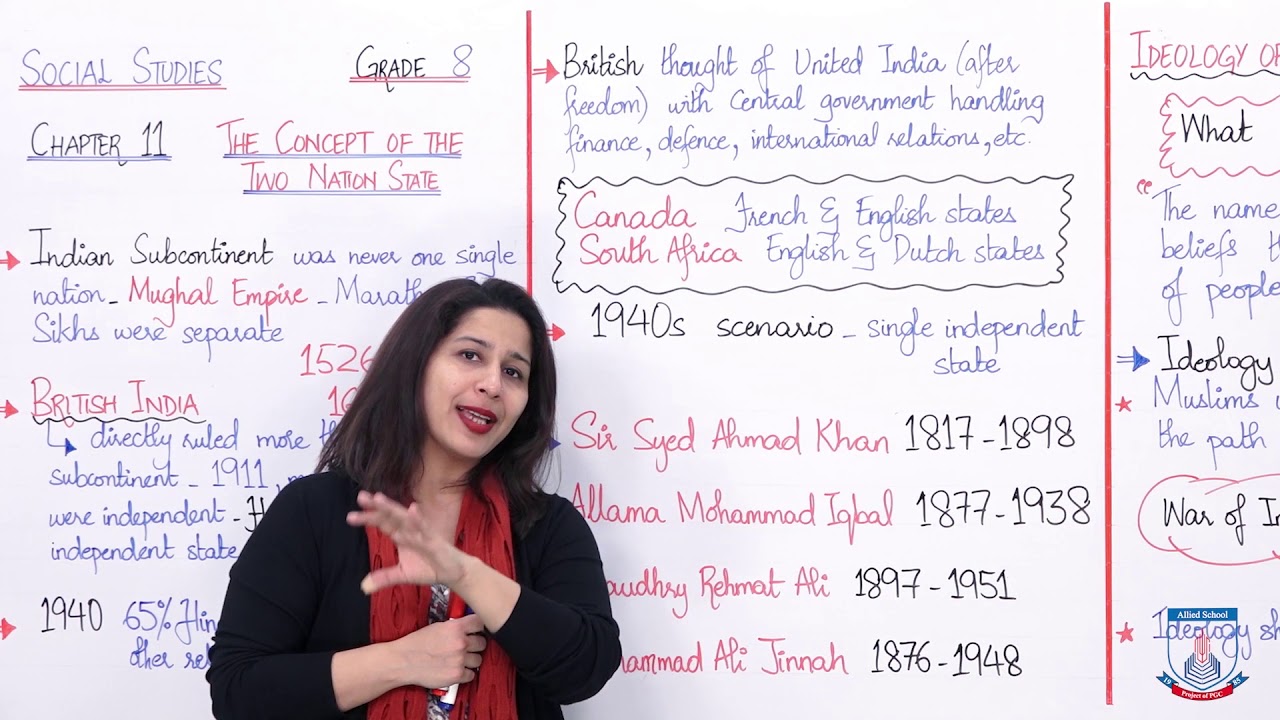 SOCIAL STUDIES GRADE 8
CHAPTER 11 THE CONCEPT OF THE
TWO NATION STATE
Indian Subcontinent was never one single
nation - Mughal Empire -
Sikhs were separate
1526
BRITISH INDIA
directly ruled more
subcontinent - 1911,
were independent -
independent state
1940 65%
other
British thought of United India (after
freedom) with central government handling
finance, defence, international relations, etc.
Canada French & English states
South Africa English & Dutch states
1940s scenario - single independent
state
Sir Syed Ahmad Khan 1817-1898
Allama Mohammad Iqbal 1877-1938
Rehmat Ali 1897-1951
Ali Jinnah 1876-1948
IDEOLOGY
What
"The name
beliefs
of people
Ideology
Muslims
the path
War of
Ideology
Allied School
19 85
Project of PGC